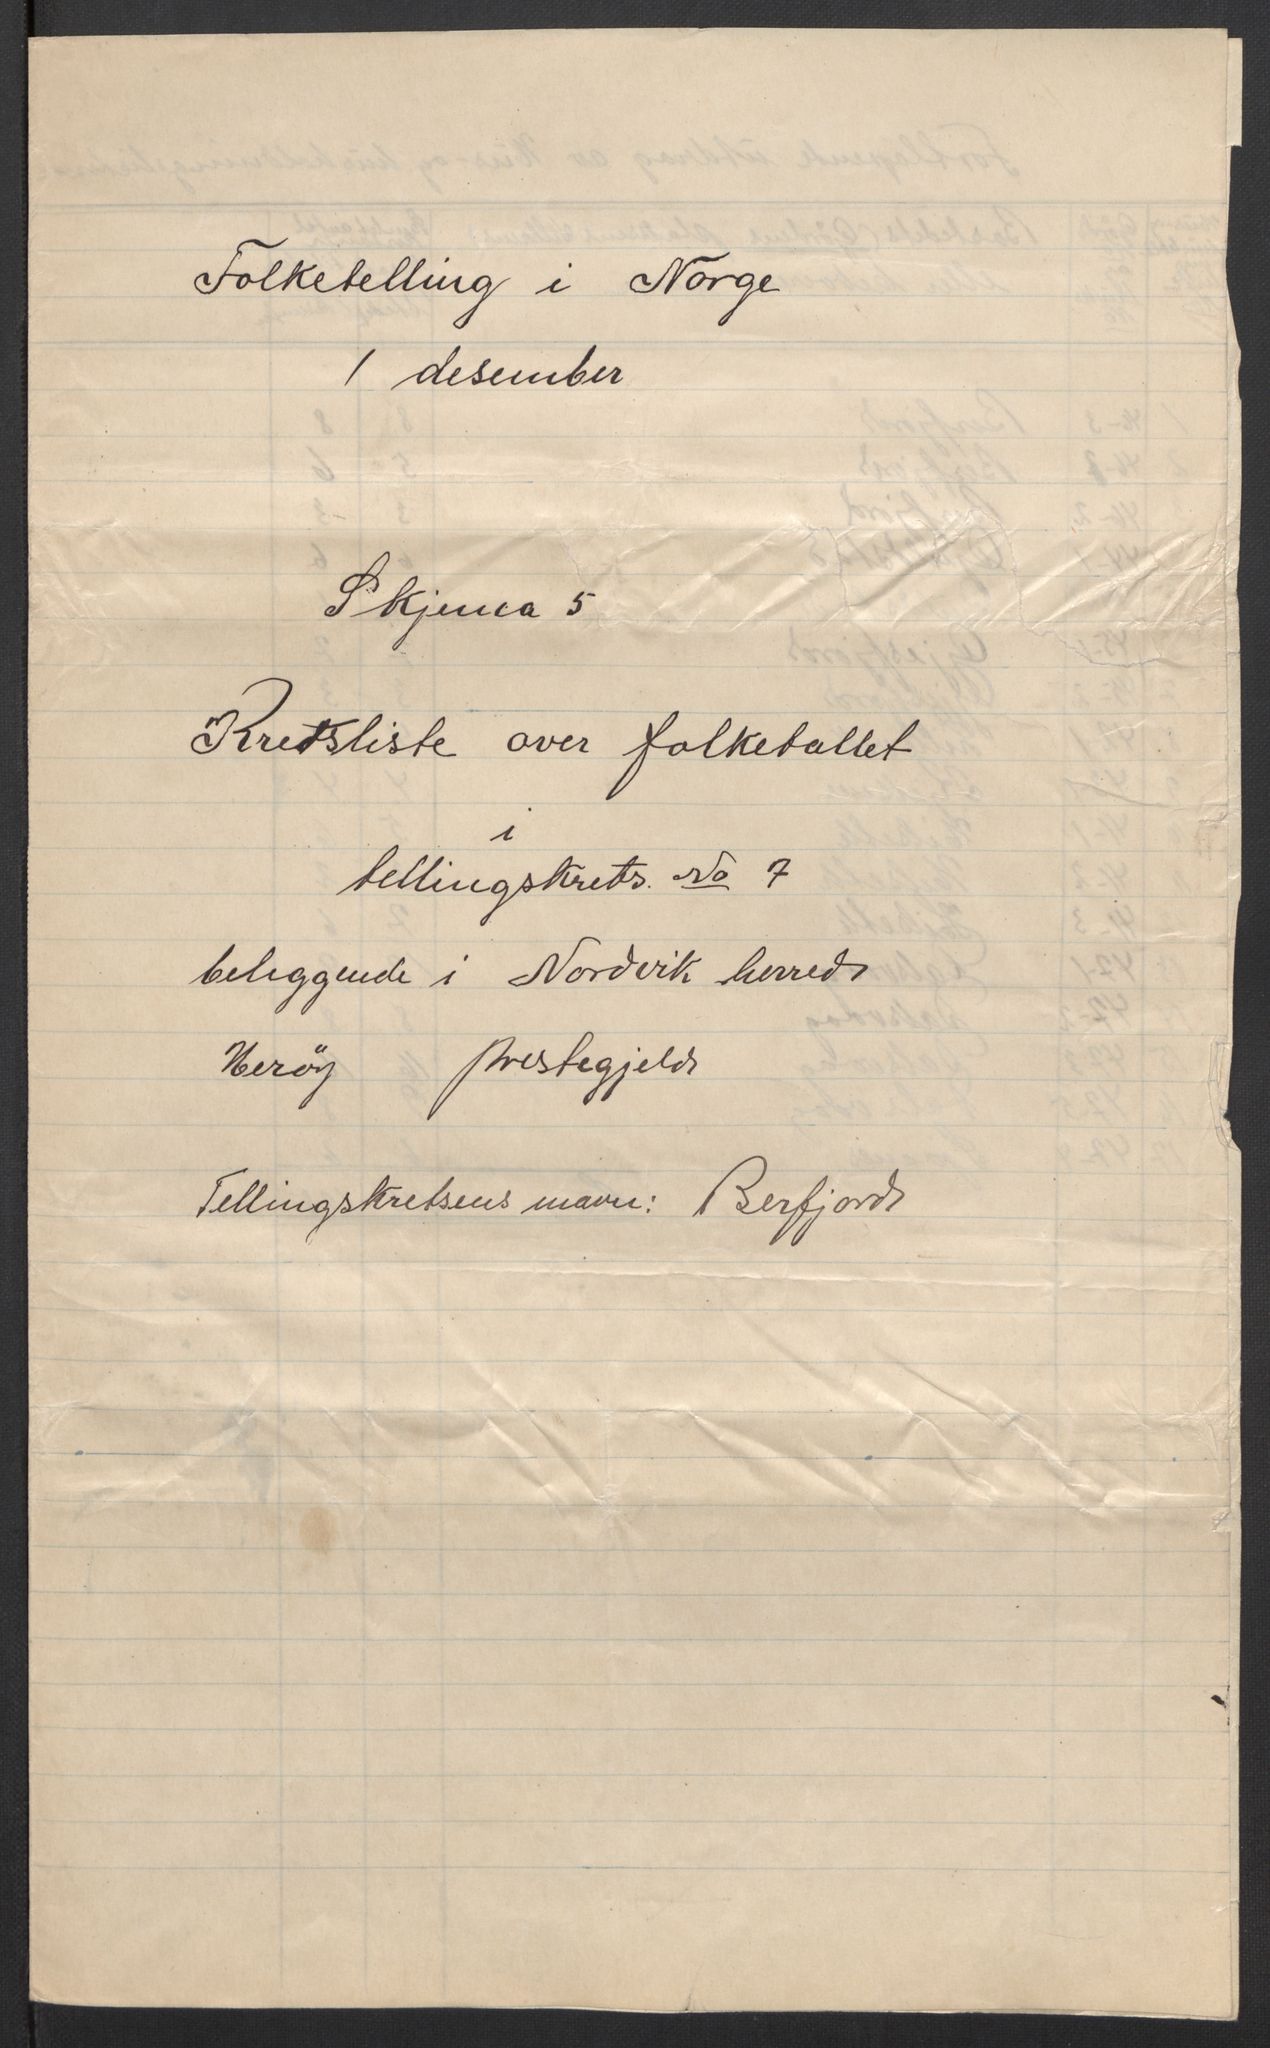 Folketelling i Norge
1 desember
Skjema 5
Kretsliste over folketallet
i
tellingskrets No 7
beliggende i Nordvik herred
Herøy prestegjeld
Tellingskretsens navn: Berfjord